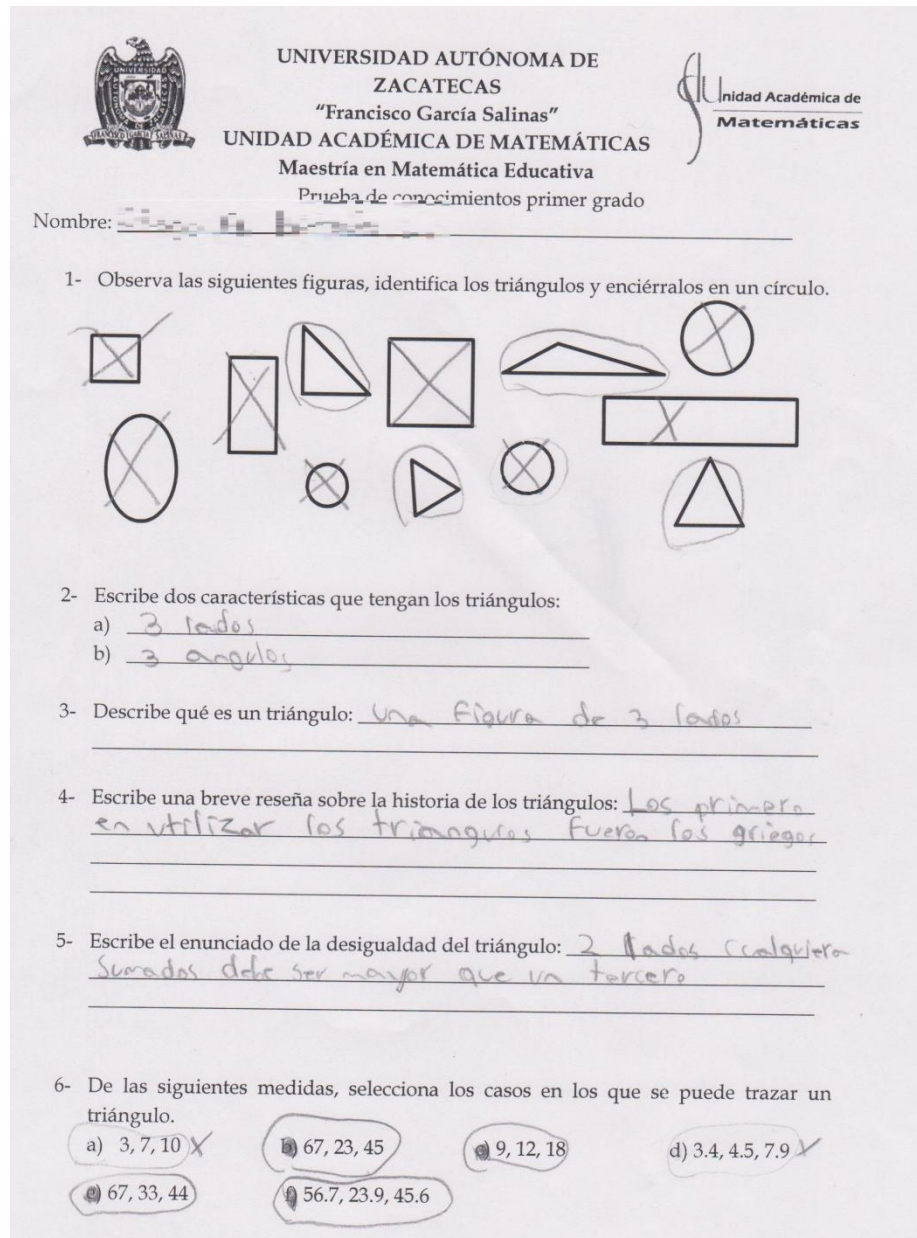 UNIVERSIDAD AUTÓNOMA DE
ZACATECAS
“Francisco García Salinas”
UNIDAD ACADÉMICA DE MATEMÁTICAS
Maestría en Matemática Educativa
Prueba de conocimientos primer grado
Unidad Académica de
Matemáticas
Nombre:
1- Observa las siguientes figuras, identifica los triángulos y enciérralos en un círculo.
2- Escribe dos características que tengan los triángulos:
a) 3 lados
b) 3 angulos
3- Describe qué es un triángulo: Una figura de 3 lados
4- Escribe una breve reseña sobre la historia de los triángulos: Los primero
en utilizar los triangulos fueron los griegos
5- Escribe el enunciado de la desigualdad del triángulo: 2 lados
sumados debe ser mayor que un tercero
6- De las siguientes medidas, selecciona los casos en los que se puede trazar un
triángulo.
a) 3, 7, 10 X b) 67, 23, 45 c) 9, 12, 18 d) 3.4, 4.5, 7.9 X
e) 67, 33, 44 f) 56.7, 23.9, 45.6